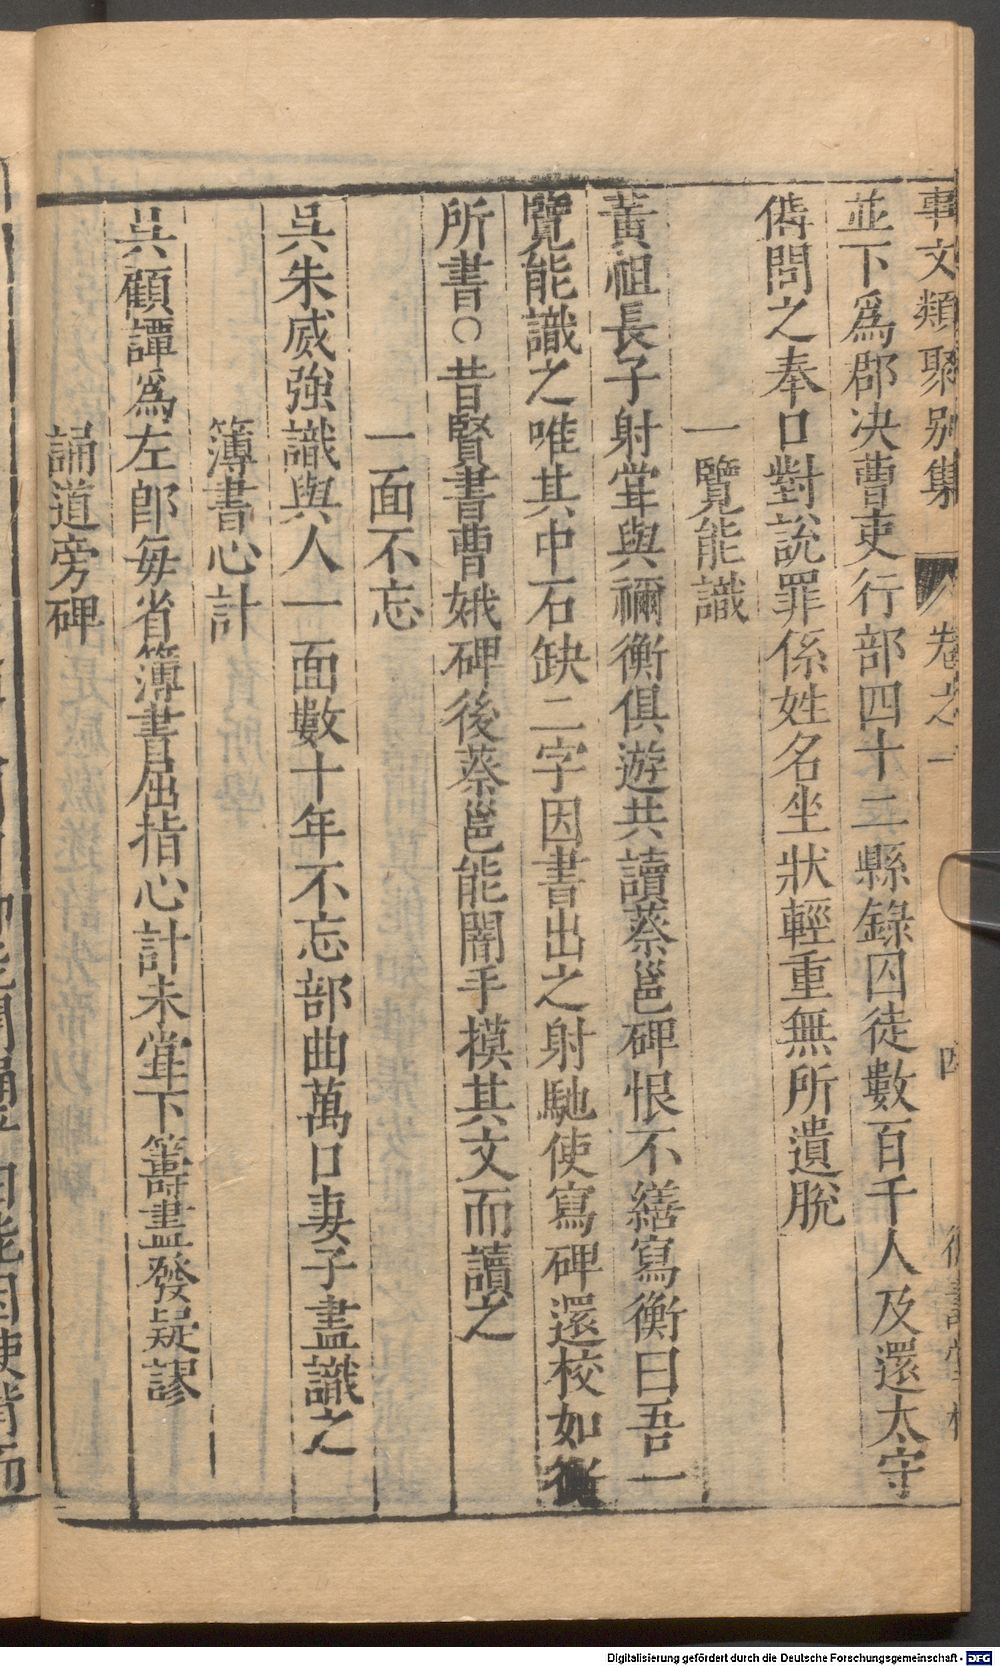 事文類聚別集 卷之一 四
並下爲郡決曹吏行部四十二縣錄囚徒數百千人及還太守
儁問之奉口對說罪係姓名坐狀輕重無所遺脫
一覽能識
黃祖長子射甞與禰衡俱遊共讀蔡邕碑恨不繕寫衡曰吾一
覽能識之唯其中石缺二字因書出之射馳使寫碑還校如衡
所書○昔賢書曹娥碑後蔡邕能闇手摸其文而讀之
一面不忘
吳朱威強識與人一面數十年不忘部曲萬口妻子盡識之
簿書心計
吳顧譚爲左郎每省簿書屈指心計未甞下籌盡發疑謬
誦道旁碑
Digitalisierung gefördert durch die Deutsche Forschungsgemeinschaft - DFG